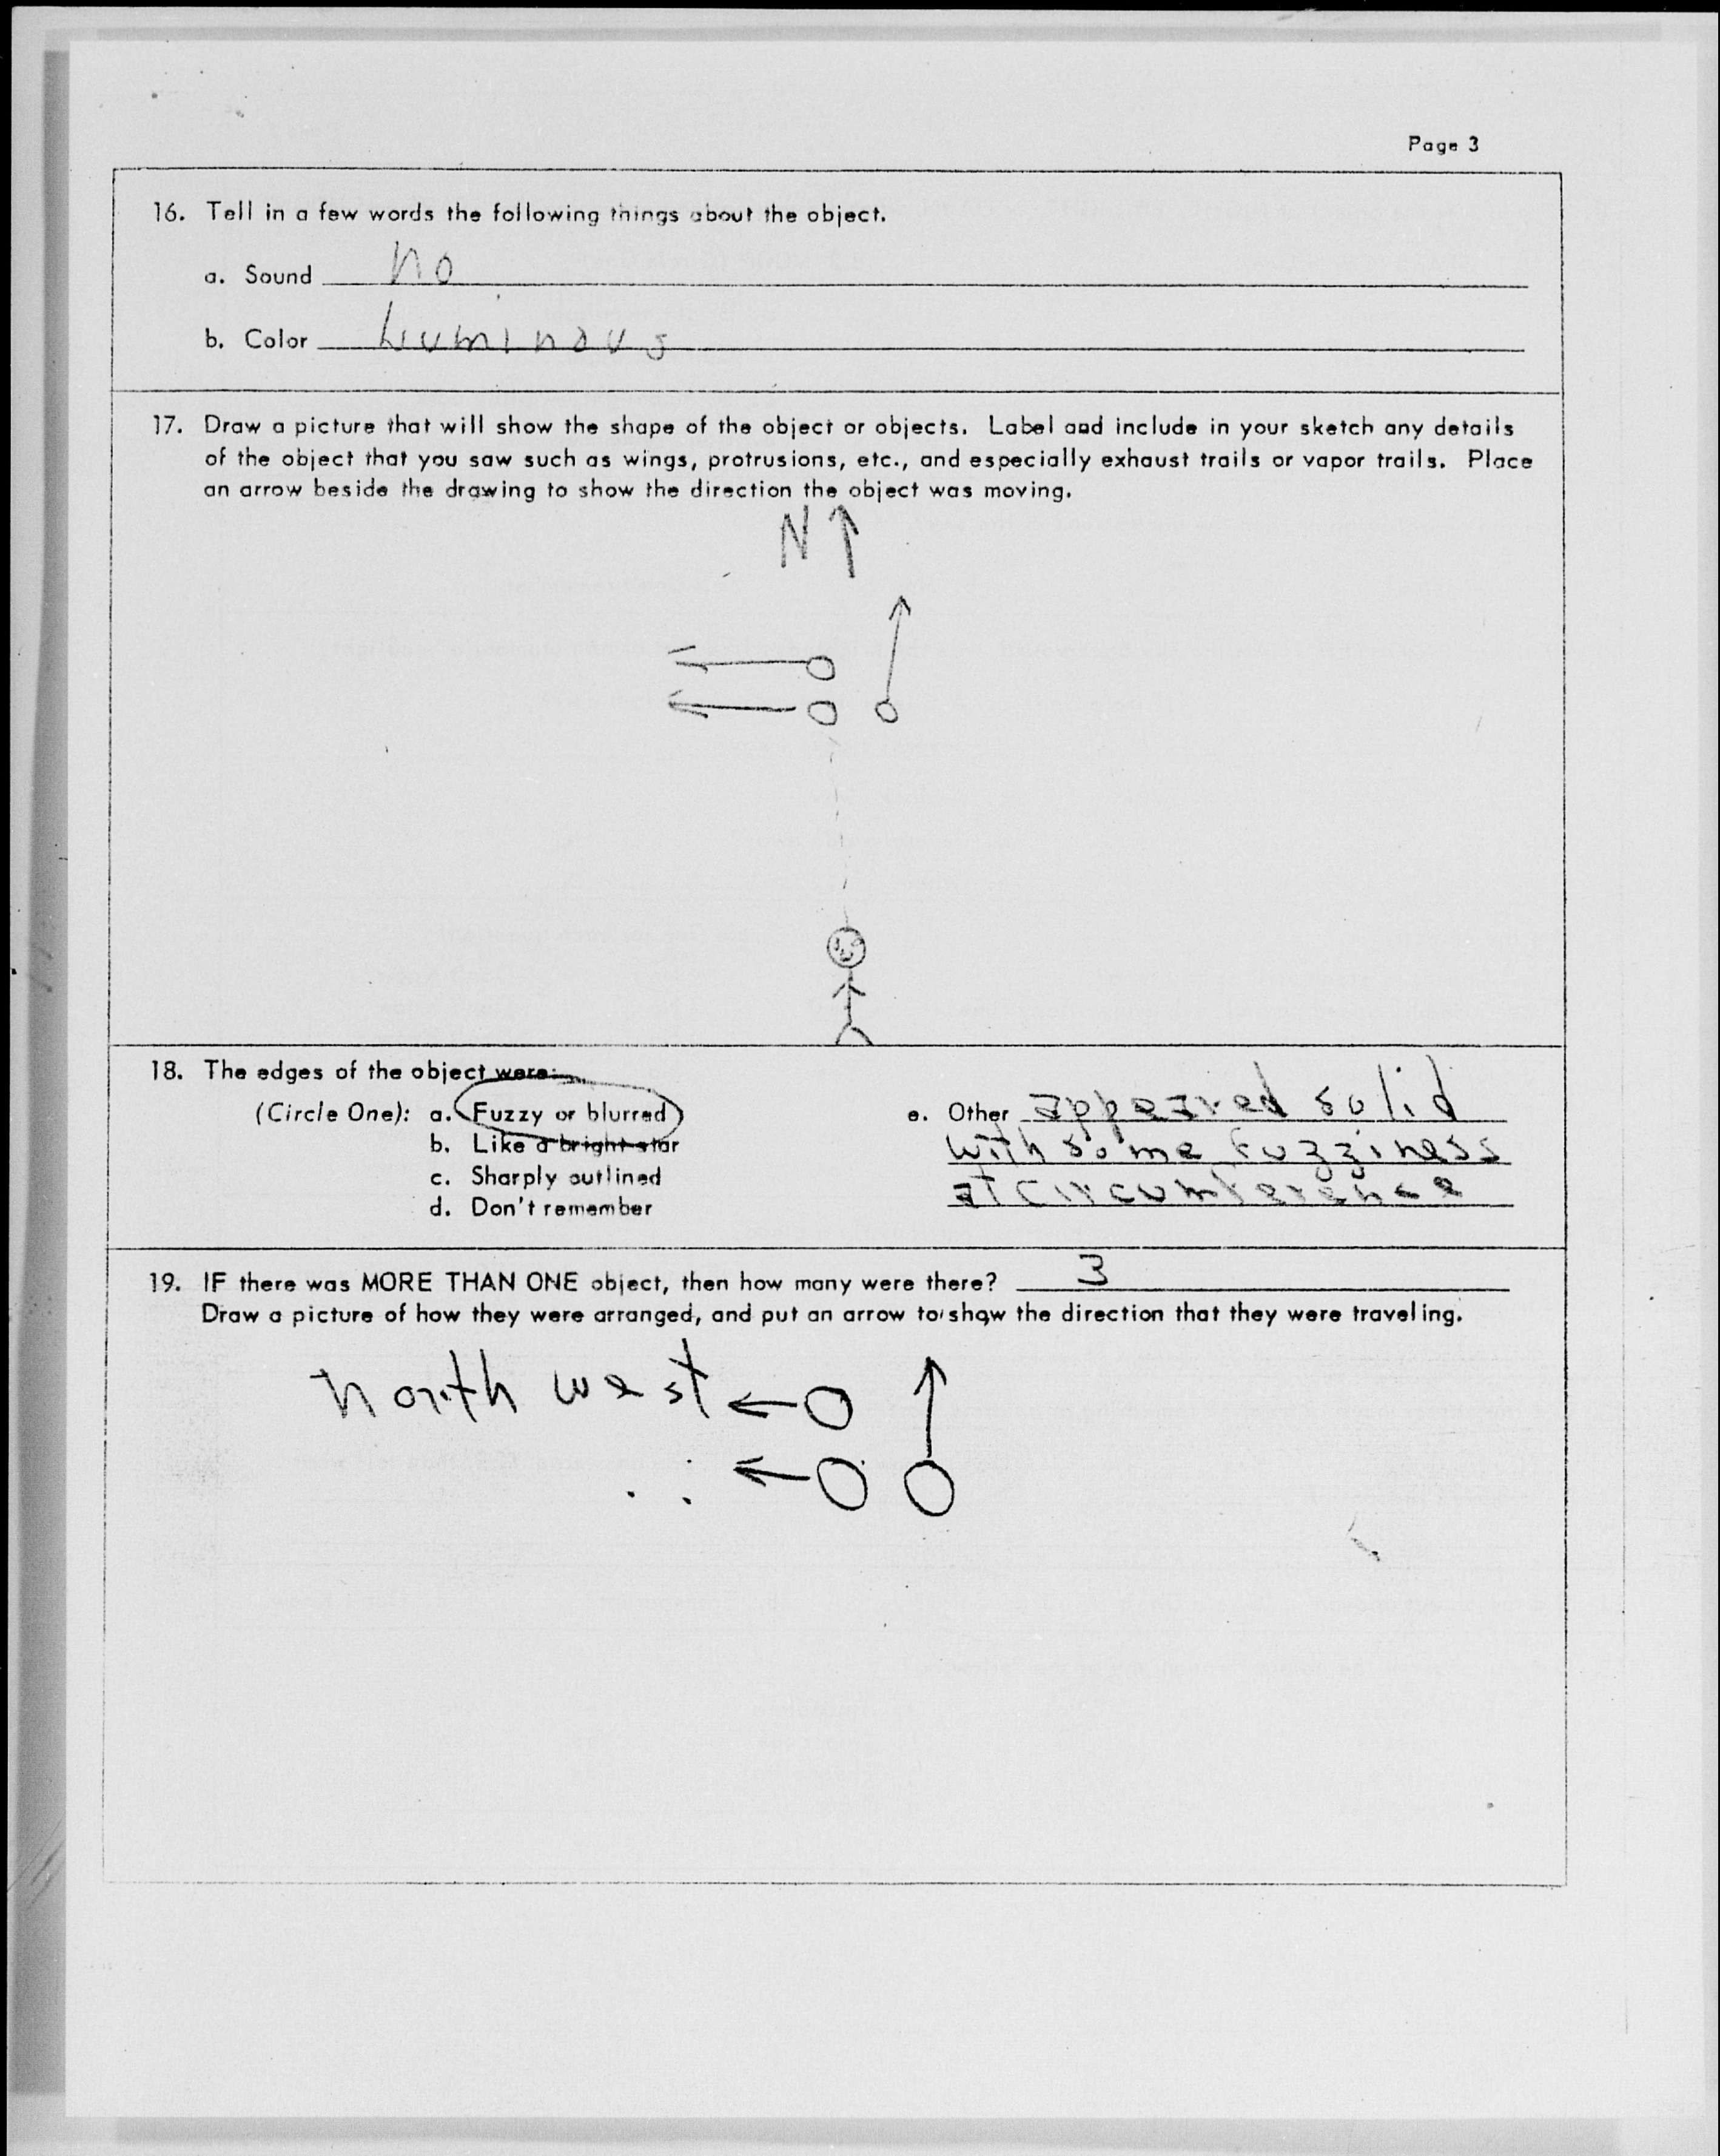 Page 3
16. Tell in a few words the following things about the object.
a. Sound no
b. Color Luminous
17. Draw a picture that will show the shape of the object or objects. Label and include in your sketch any details
of the object that you saw such as wings, protrusions, etc., and especially exhaust trails or vapor trails. Place
an arrow beside the drawing to show the direction the object was moving.
N
18. The edges of the object were:
(Circle One): a. Fuzzy or blurred e. Other appeared solid
b. Like a bright star with some fuzziness
c. Sharply outlined at circumference
d. Don't remember
19. IF there was MORE THAN ONE object, then how many were there? 3
Draw a picture of how they were arranged, and put an arrow to show the direction that they were traveling.
north west